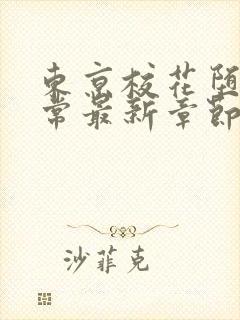 東京校花堕
常最新章節
沙菲克